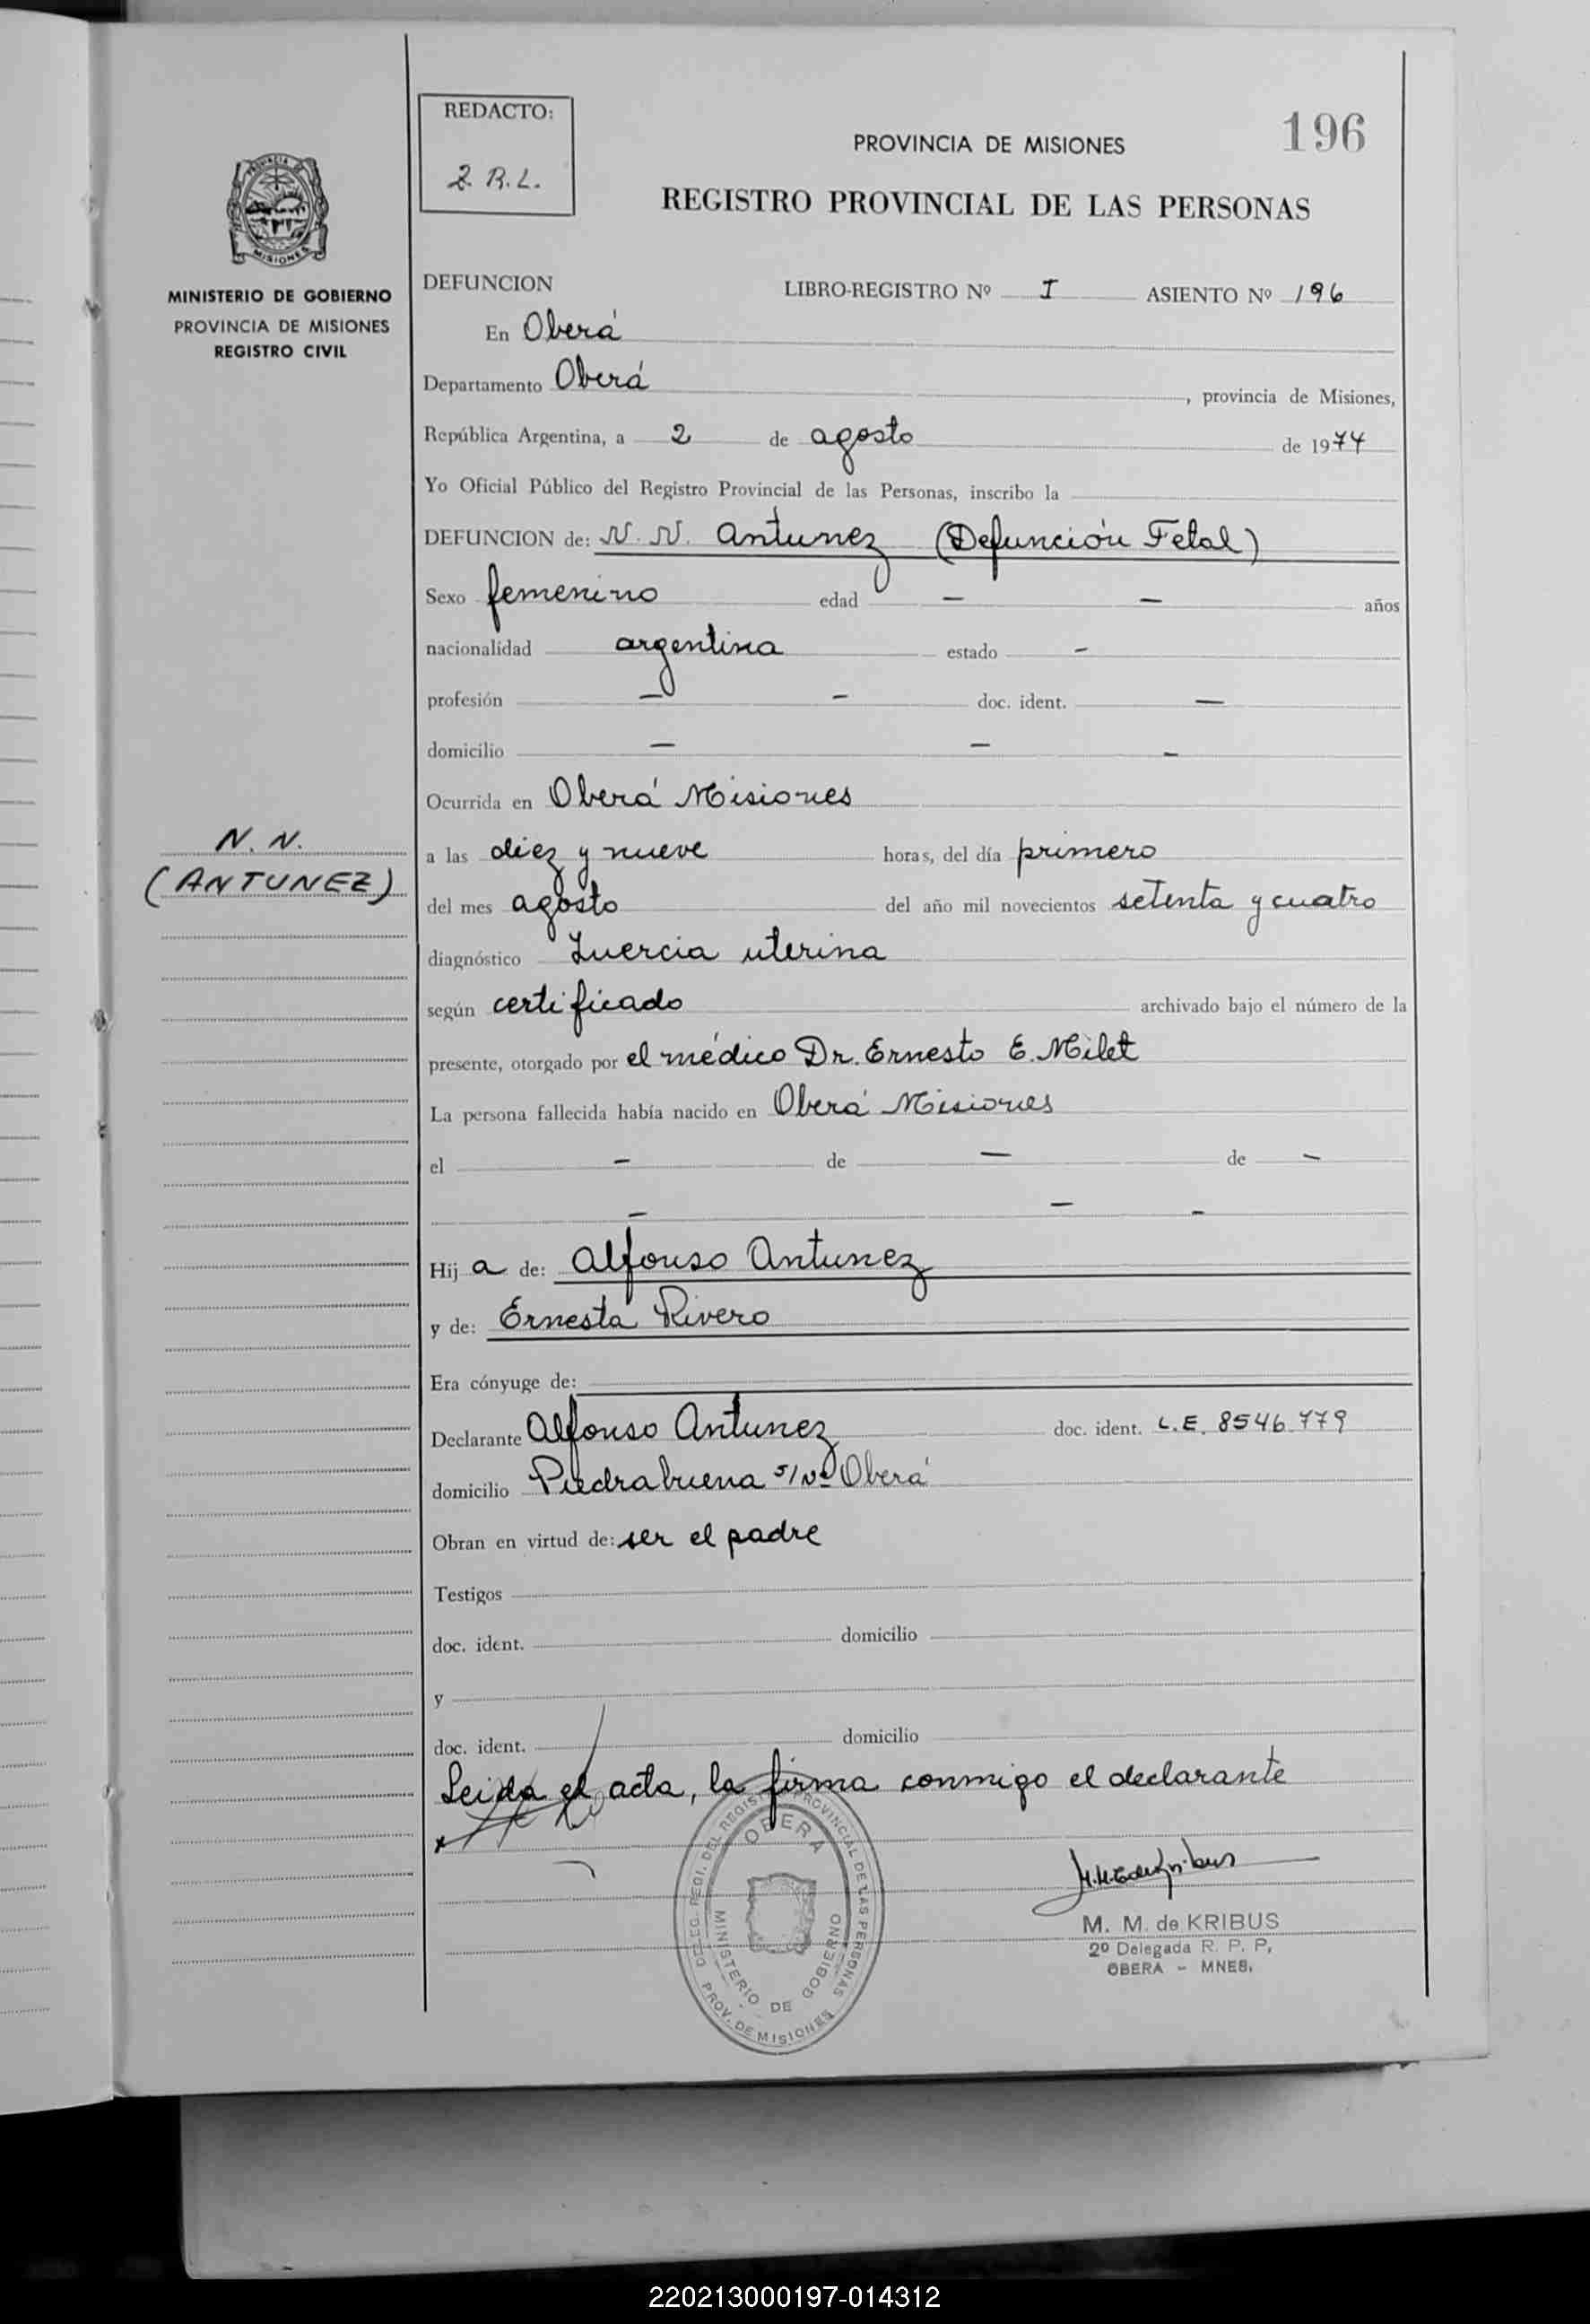 196
REDACTO:
Z. R. L.
PROVINCIA DE MISIONES
REGISTRO PROVINCIAL DE LAS PERSONAS
PROVINCIA DE
MISIONES
MINISTERIO DE GOBIERNO
PROVINCIA DE MISIONES
REGISTRO CIVIL
DEFUNCION LIBRO-REGISTRO Nº I ASIENTO Nº 196
En Oberá
Departamento Oberá, provincia de Misiones,
República Argentina, a 2 de agosto de 1974
Yo Oficial Público del Registro Provincial de las Personas, inscribo la
DEFUNCION de: N. N. Antunez (Defunción Fetal)
Sexo femenino edad — — años
nacionalidad argentina estado -
profesión — - doc. ident. —
domicilio — — -
Ocurrida en Oberá Misiones
N. N.
(ANTUNEZ)
a las diez y nueve horas, del día primero
del mes agosto del año mil novecientos setenta y cuatro
diagnóstico Inercia uterina
según certificado archivado bajo el número de la
presente, otorgado por el médico Dr. Ernesto E. Milet
La persona fallecida había nacido en Oberá Misiones
el - de — de -
— — -
Hij a de: Alfonso Antunez
y de: Ernesta Rivero
Era cónyuge de:
Declarante Alfonso Antunez doc. ident. L.E. 8546.779
domicilio Piedrabuena s/Nº Oberá
Obran en virtud de: ser el padre
Testigos
doc. ident. domicilio
y
doc. ident. domicilio
Leida el acta, la firma conmigo el declarante
DELEG. REGI. DEL REGISTRO PROVINCIAL DE LAS PERSONAS
OBERA
MINISTERIO DE GOBIERNO
PROV. DE MISIONES
M. M. de KRIBUS
2º Delegada R. P. P.
OBERA - MNES.
220213000197-014312